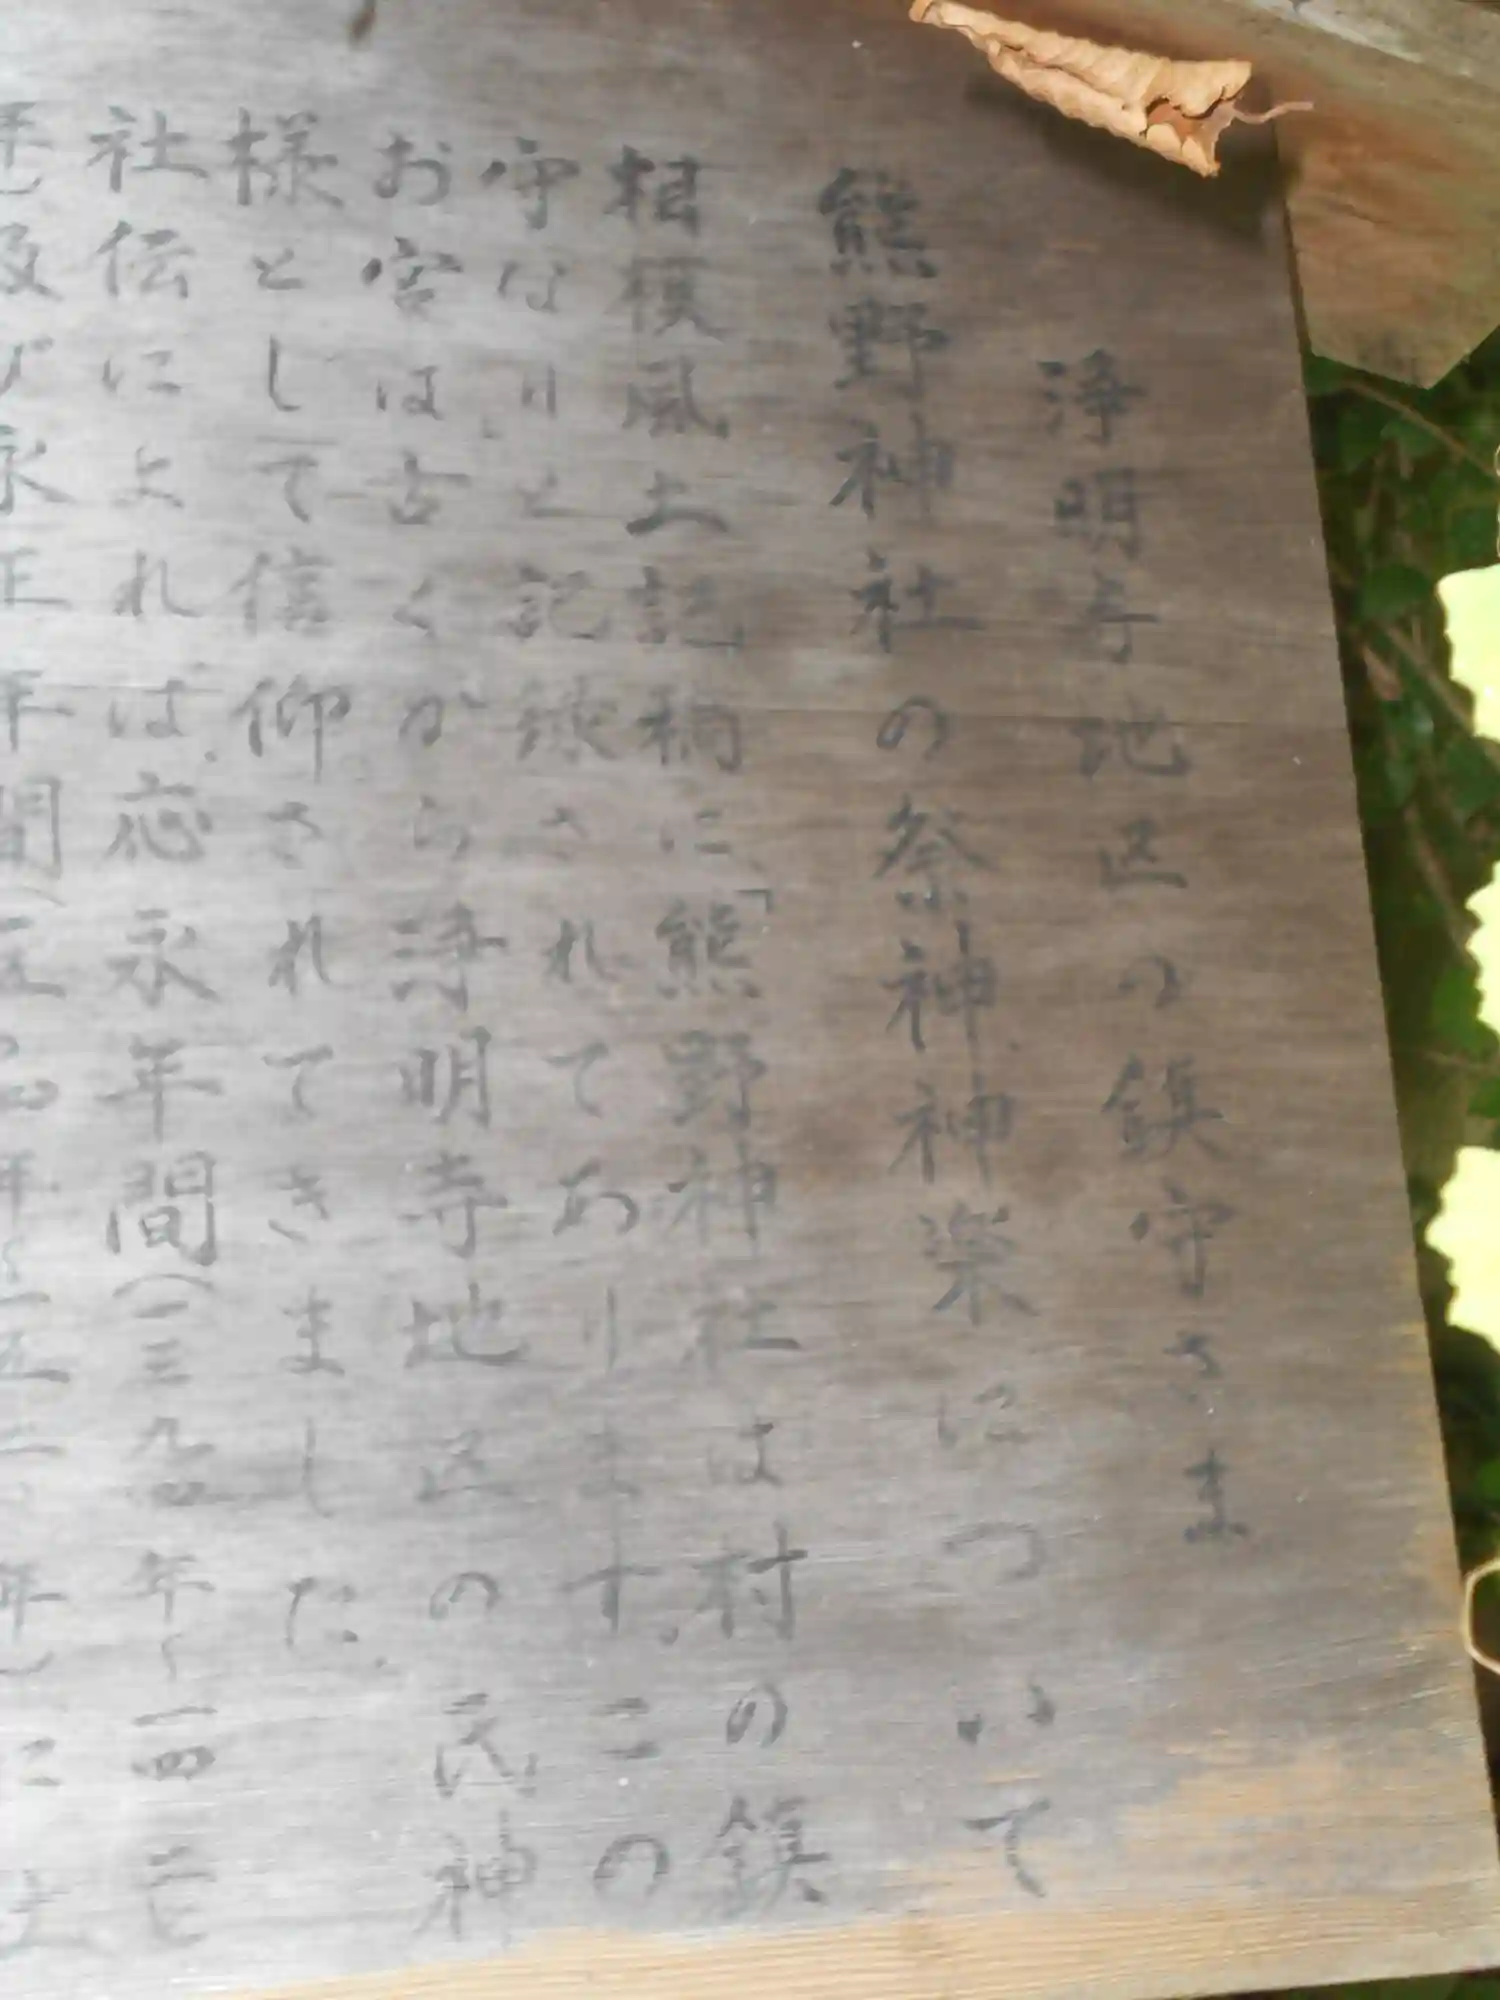 浄明寺地区の鎮守さま
熊野神社の祭神、神楽について
相模風土記稿に、「熊野神社は村の鎮
守なり、と記録されてあります。この
お宮は古くから浄明寺地区の氏神
様として信仰されてきました。
社伝によれば、応永年間(一三九四年〜一四二七
年)及び永正年間(一五〇四年〜一五二一年)に